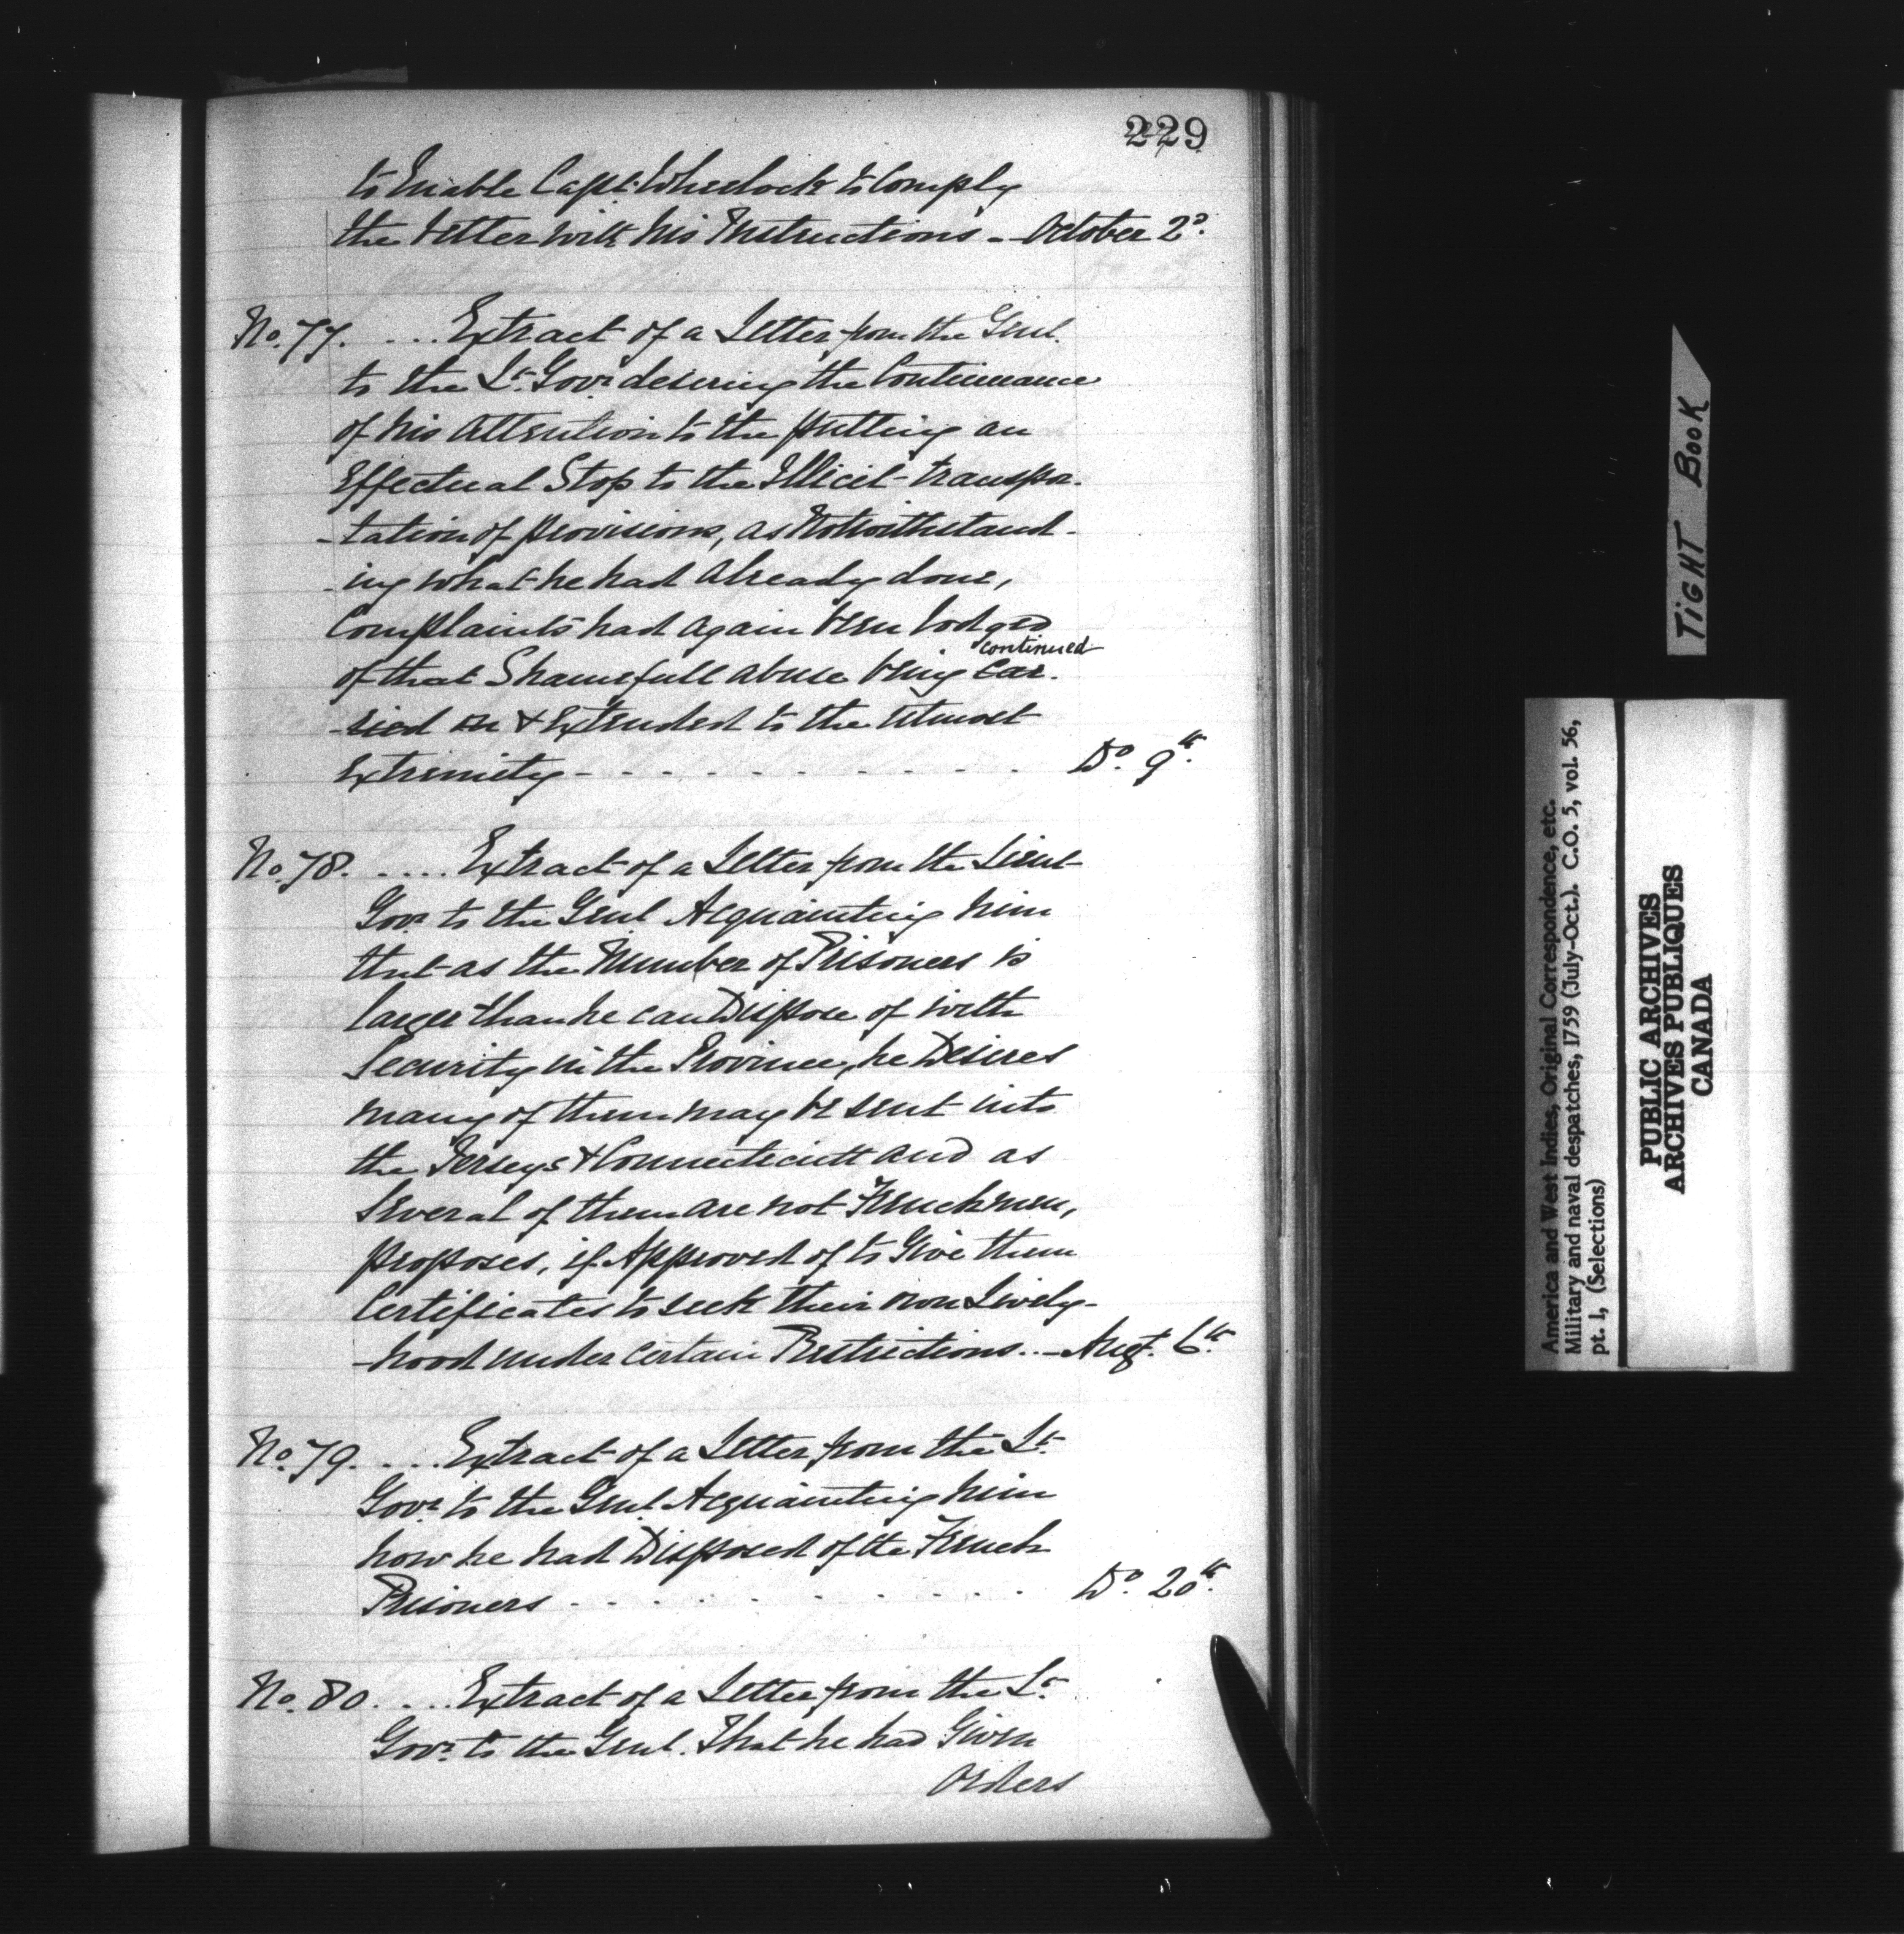 229
to Enable Capt. Wheelock to Comply
the better with his Instructions - October 2d.
No. 77. .... Extract of a Letter from the Genl.
to the Lt. Govr. desiring the Continuance
of his Attention to the putting an
Effectual Stop to the Illicit transpor-
-tation of provisions, as Notwithstand-
-ing what he had Already done,
Complaints had again been lodged
continued
of that Shamefull abuse being car-
-ried on & Extended to the utmost
Extremity - - - - - - - - - - Do. 9th.
No. 78. ..... Extract of a Letter from the Lieut
Govr. to the Genl Acquainting him
that as the Number of Prisoners is
larger than he can Dispose of with
Security in the Province, he Desires
many of them may be sent into
the Jerseys & Connecticutt and as
Several of them are not Frenchmen,
proposes, if Approved of to Give them
Certificates to seek their own Lively-
-hood under certain Restrictions. - Augt. 6th.
No. 79. .... Extract of a Letter from the Lt.
Govr. to the Genl. Acquainting him
how he had Disposed of the French
Prisoners . . . . . . . . . Do. 20th.
No. 80. .... Extract of a Letter from the Lt.
Govr. to the Genl. That he had Given
Orders
TIGHT BOOK
America and West Indies, Original Correspondence, etc.
Military and naval despatches, 1759 (July-Oct.). C.O. 5, vol. 56,
pt. 1, (Selections)
PUBLIC ARCHIVES
ARCHIVES PUBLIQUES
CANADA